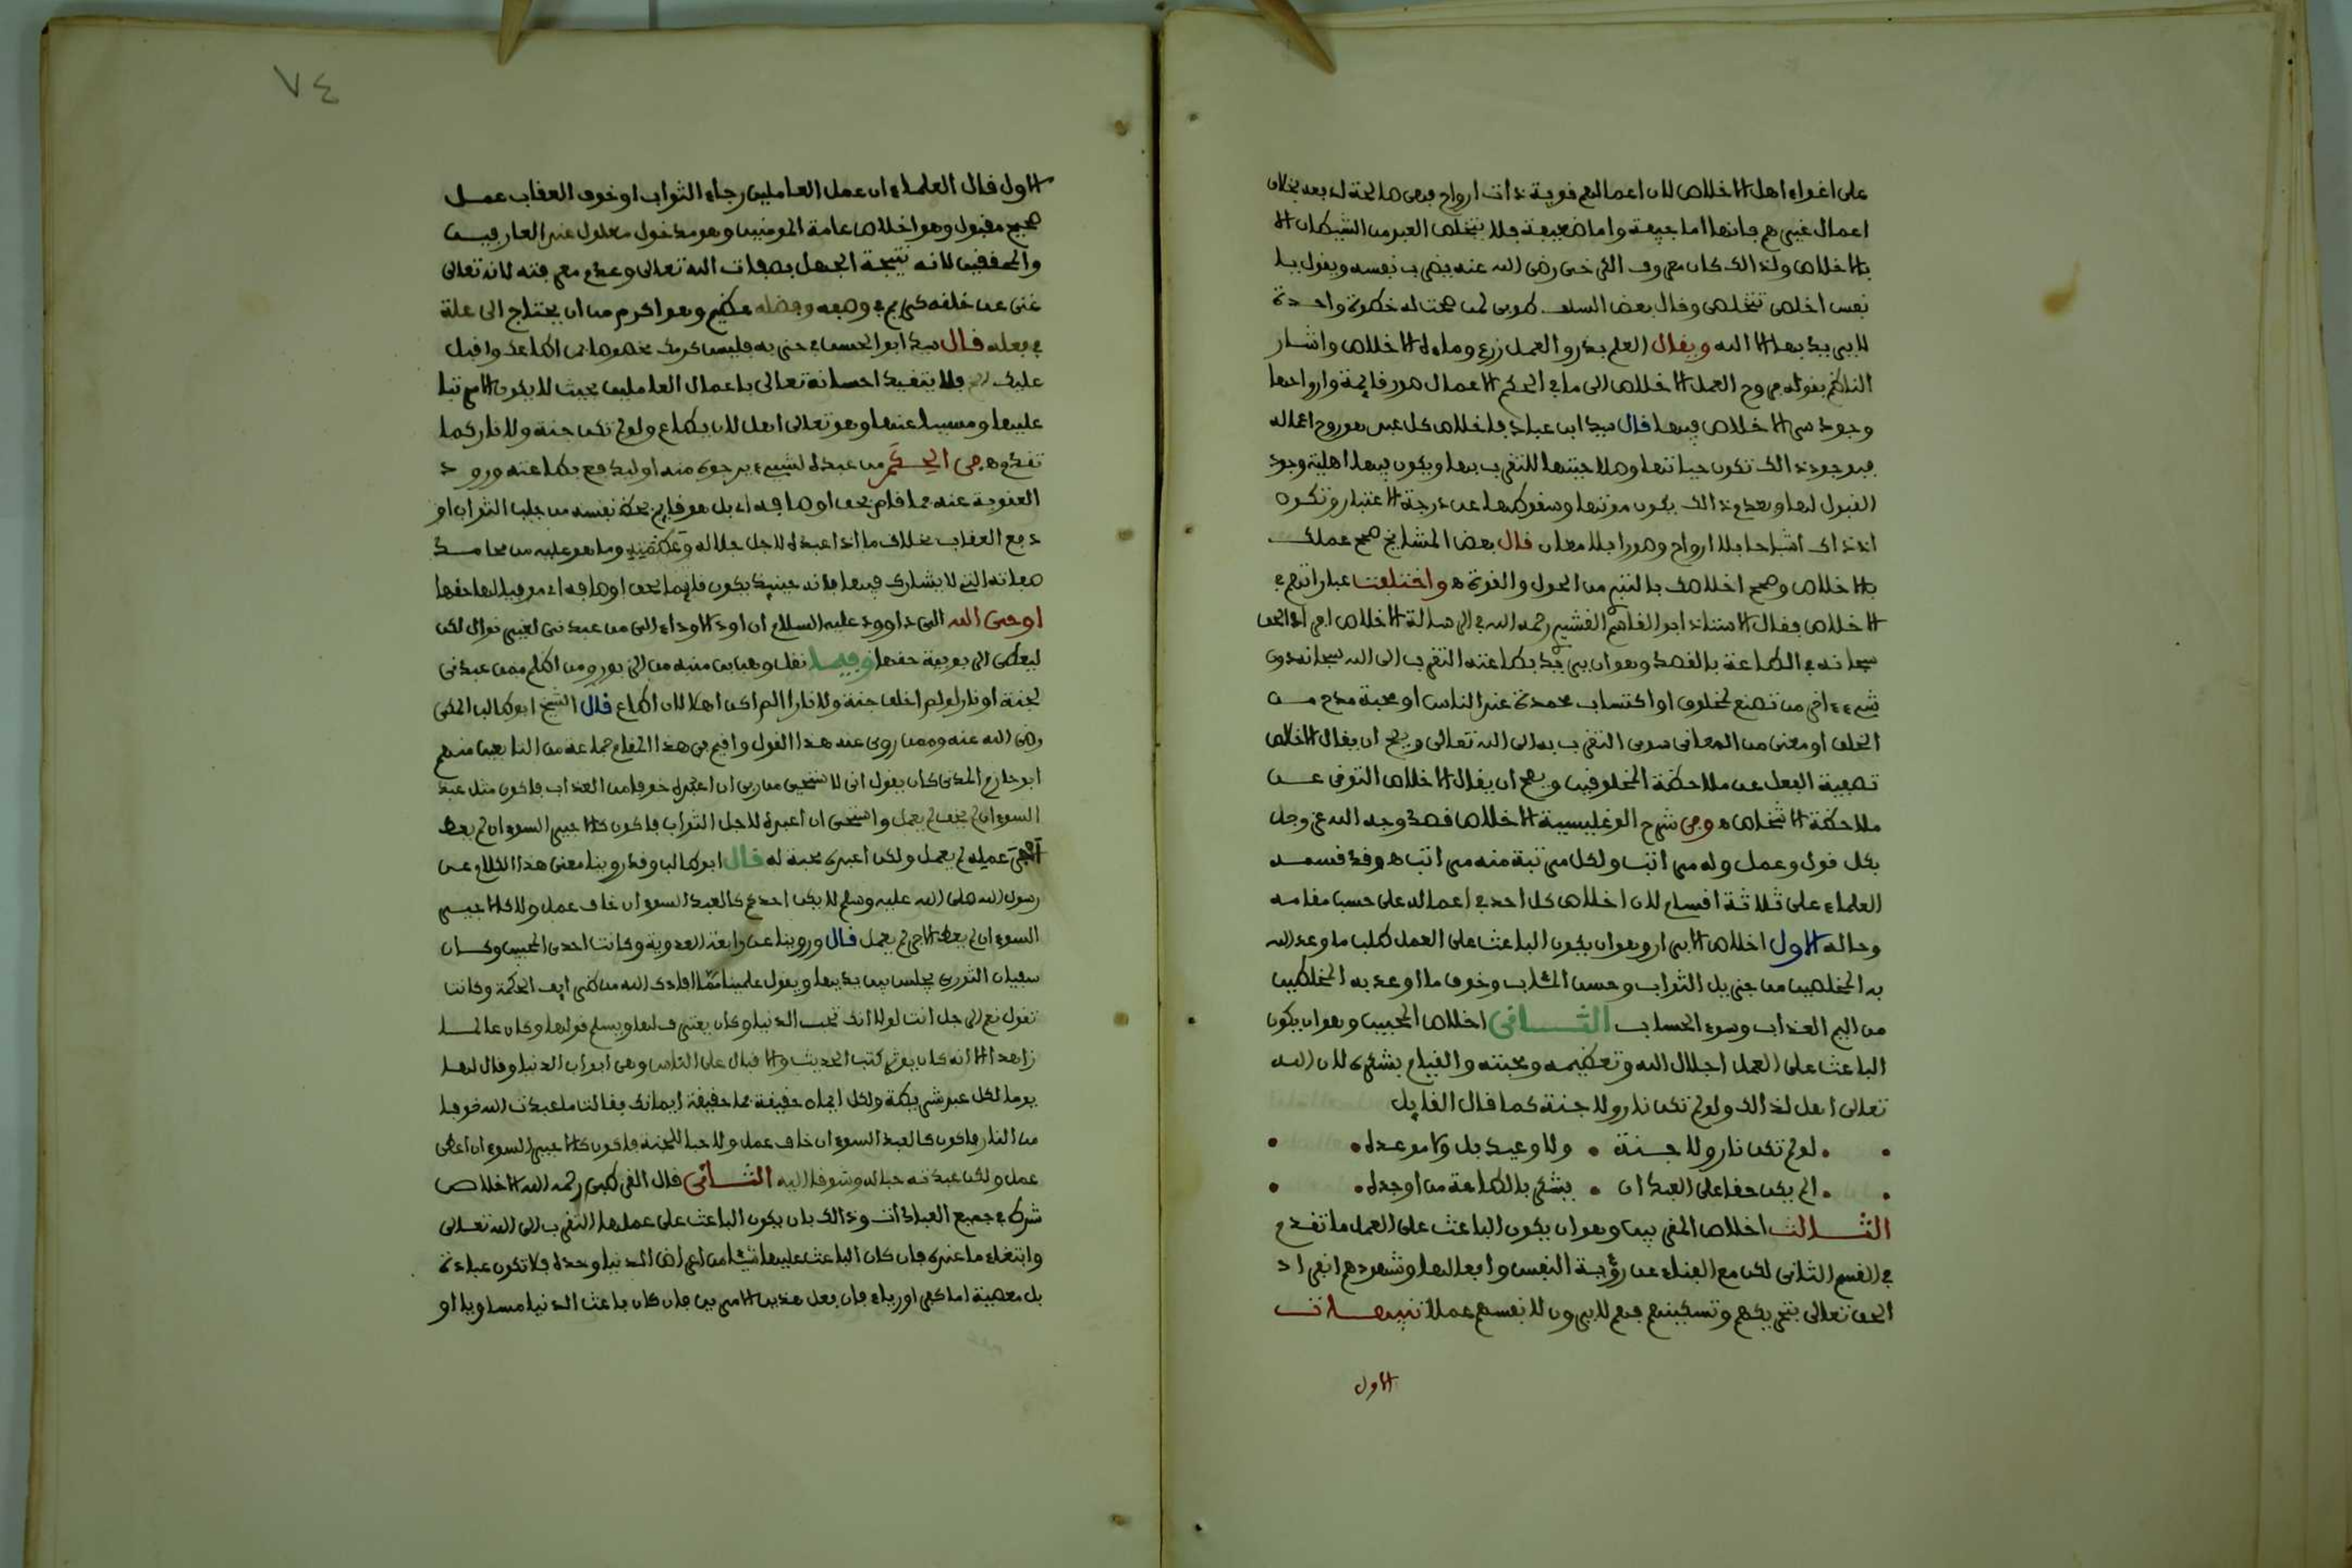 على اغواء اهل الاخلاص لان اعمالهم قوية ذات ارواح فهى صالحة له بعد بخلاف
اعمال غيرهم فانها اما جيفة واما ضعيفة فلا يتخلص العبد من الشيطان الا
بالاخلاص ولذالك كان معروف الكرخى رضى الله عنه يضرب نفسه ويقول يا
نفس اخلصى تتخلصى وقال بعض السلف طوبى لمن صحت له خطوة واحدة
لا يريد بها الا الله ويقال العلم بذر والعمل زرع وماءه الاخلاص واشار
الناظم بقوله روح العمل الاخلاص الى ما فى الحكم الاعمال صور قايمة وارواحها
وجود سر الاخلاص فيها قال سيد ابن عباد فاخلاص كل عبد هو روح اعماله
فبوجود ذالك تكون حياتها وصلاحيتها للتقرب بها ويكون فيها اهلية وجود
القبول لها وبعدم ذالك يكون موتها وسقوطها عن درجة الاعتبار وتكون
اذ ذاك اشباحا بلا ارواح وصورا بلا معان قال بعض المشايخ صحح عملك
بالاخلاص وصحح اخلاصك بالتبرى من الحول والقوة ه واختلفت عباراتهم فى
الاخلاص فقال الاستاذ ابو القاسم القشيرى رحمه الله فى الرسالة الاخلاص افراد الحق
سبحانه فى الطاعة بالقصد وهو ان يريد بطاعته التقرب الى الله سبحانه دون
شىء ءاخر من تصنع لمخلوق او اكتساب محمدة عند الناس او محبة مدح من
الخلق او معنى من المعانى سوى التقرب به الى الله تعالى ويصح ان يقال الاخلاص
تصفية الفعل عن ملاحظة المخلوقين ويصح ان يقال الاخلاص التوقى عن
ملاحظة الاشخاص ه وفى شرح الوغليسية الاخلاص قصد وجه الله عز وجل
بكل قول وعمل وله مراتب ولكل مرتبة منه مراتب ه وقد قسمه
العلماء على ثلاثة اقسام لان اخلاص كل احد فى اعماله على حسب مقامه
وحاله الاول اخلاص الابرار وهو ان يكون الباعث على العمل طلب ما وعد الله
به المخلصين من جزيل الثواب وحسن المئاب وخوف ما اوعد به المخلطين
من اليم العذاب وسوء الحساب الثانى اخلاص المحبين وهو ان يكون
الباعث على العمل اجلال الله وتعظيمه ومحبته والقيام بشكره لان الله
تعالى اهل لذالك ولو لم تكن نار ولا جنة كما قال القايل
لو لم تكن نار ولا جنة • ولا وعيد بل ولا موعده
الم يكن حقا على العبد ان • يشكر بالطاعة من اوجده
الثالث اخلاص المقربين وهو ان يكون الباعث على العمل ما تقدم
فى القسم الثانى لكن مع الفناء عن رؤية النفس وافعالها وشهودهم انفراد
الحق تعالى بتحريكهم وتسكينهم فهم لا يرون لانفسهم عملا تنبيهات
الاول
٧٤
الاول قال العلماء ان عمل العاملين رجاء الثواب او خوف العقاب عمل
صحيح مقبول وهو اخلاص عامة المومنين وهو مدخول معلول عند العارفين
والمحققين لانه نتيجة الجهل بصفات الله تعالى وعدم معرفته لانه تعالى
غنى عن خلقه كريم فى وصفه وفضله عظيم وهو اكرم من ان يحتاج الى علة
فى فعله قال سيد ابو الحسن فى حزبه فليس كرمك مخصوصا بمن اطاعك واقبل
عليك فلا يتقيد احسانه تعالى باعمال العاملين بحيث لا يكون الا مرتبا
عليها ومسببا عنها وهو تعالى اهل لان يطاع ولو لم تكن جنة ولا نار كما
تقدم ه وفى الحكم من عبده لشىء يرجوه منه او ليدفع بطاعته ورود
العقوبة عنه فما قام بحق اوصافه اى بل هو قايم بحظ نفسه من جلب الثواب او
دفع العقاب بخلاف ما اذا عبده لاجل جلاله وعظمته وما هو عليه من محامد
صفاته التى لا يشارك فيها فانه حينئذ يكون قايما بحق اوصافه اى موفيا لها حقها
اوحى الله الى داوود عليه السلام ان اود الاوداء الى من عبدنى لغير نوال لكن
ليعطى الربوبية حقها وفيما نقل وهب بن منبه من الزبور ومن اظلم ممن عبدنى
لجنة او نار لو لم اخلق جنة ولا نارا الم اكن اهلا لان اطاع قال الشيخ ابو طالب المكى
رضى الله عنه وممن روى عنه هذا القول واقيم فى هذا المقام جماعة من التابعين منهم
ابو حازم المدنى كان يقول انى لاستحيى من ربى ان اعبده خوفا من العذاب فاكون مثل عبد
السوء ان لم يخف لم يعمل واستحيى ان اعبده لاجل الثواب فاكون كالاجير السوء ان لم يعط
اجر عمله لم يعمل ولكن اعبده محبة له قال ابو طالب وقد روينا معنى هذا الكلام عن
رسول الله صلى الله عليه وسلم لا يكن احدكم كالعبد السوء ان خاف عمل ولا كالاجير
السوء ان لم يعط الاجر لم يعمل قال وروينا عن رابعة العدوية وكانت احدى المحبين وكان
سفيان الثورى يجلس بين يديها ويقول علمينا مما افادك الله من طرايف الحكمة وكانت
تقول نعم الرجل انت لولا انك تحب الدنيا وكان يعترف لها ويسلم قولها وكان عالما
زاهدا الا انه كان يوثر كتب الحديث والاقبال على الناس وهى ابواب الدنيا وقال لها
يوما لكل عبد شريطة ولكل ايمان حقيقة فما حقيقة ايمانك فقالت ما عبدت الله خوفا
من النار فاكون كالعبد السوء ان خاف عمل ولا حبا للجنة فاكون كالاجير السوء ان اعطى
عمل ولكن عبدته حبا له وشوقا اليه الثانى قال القرطبى رحمه الله الاخلاص
شرط فى جميع العبادات وذالك بان يكون الباعث على عملها التقرب الى الله تعالى
وابتغاء ما عنده فان كان الباعث عليها شيئا من اعراض الدنيا وحده فلا تكون عبادة
بل معصية اما كفر او رياء فان فعل هذين الامرين فان كان باعث الدنيا مساويا او